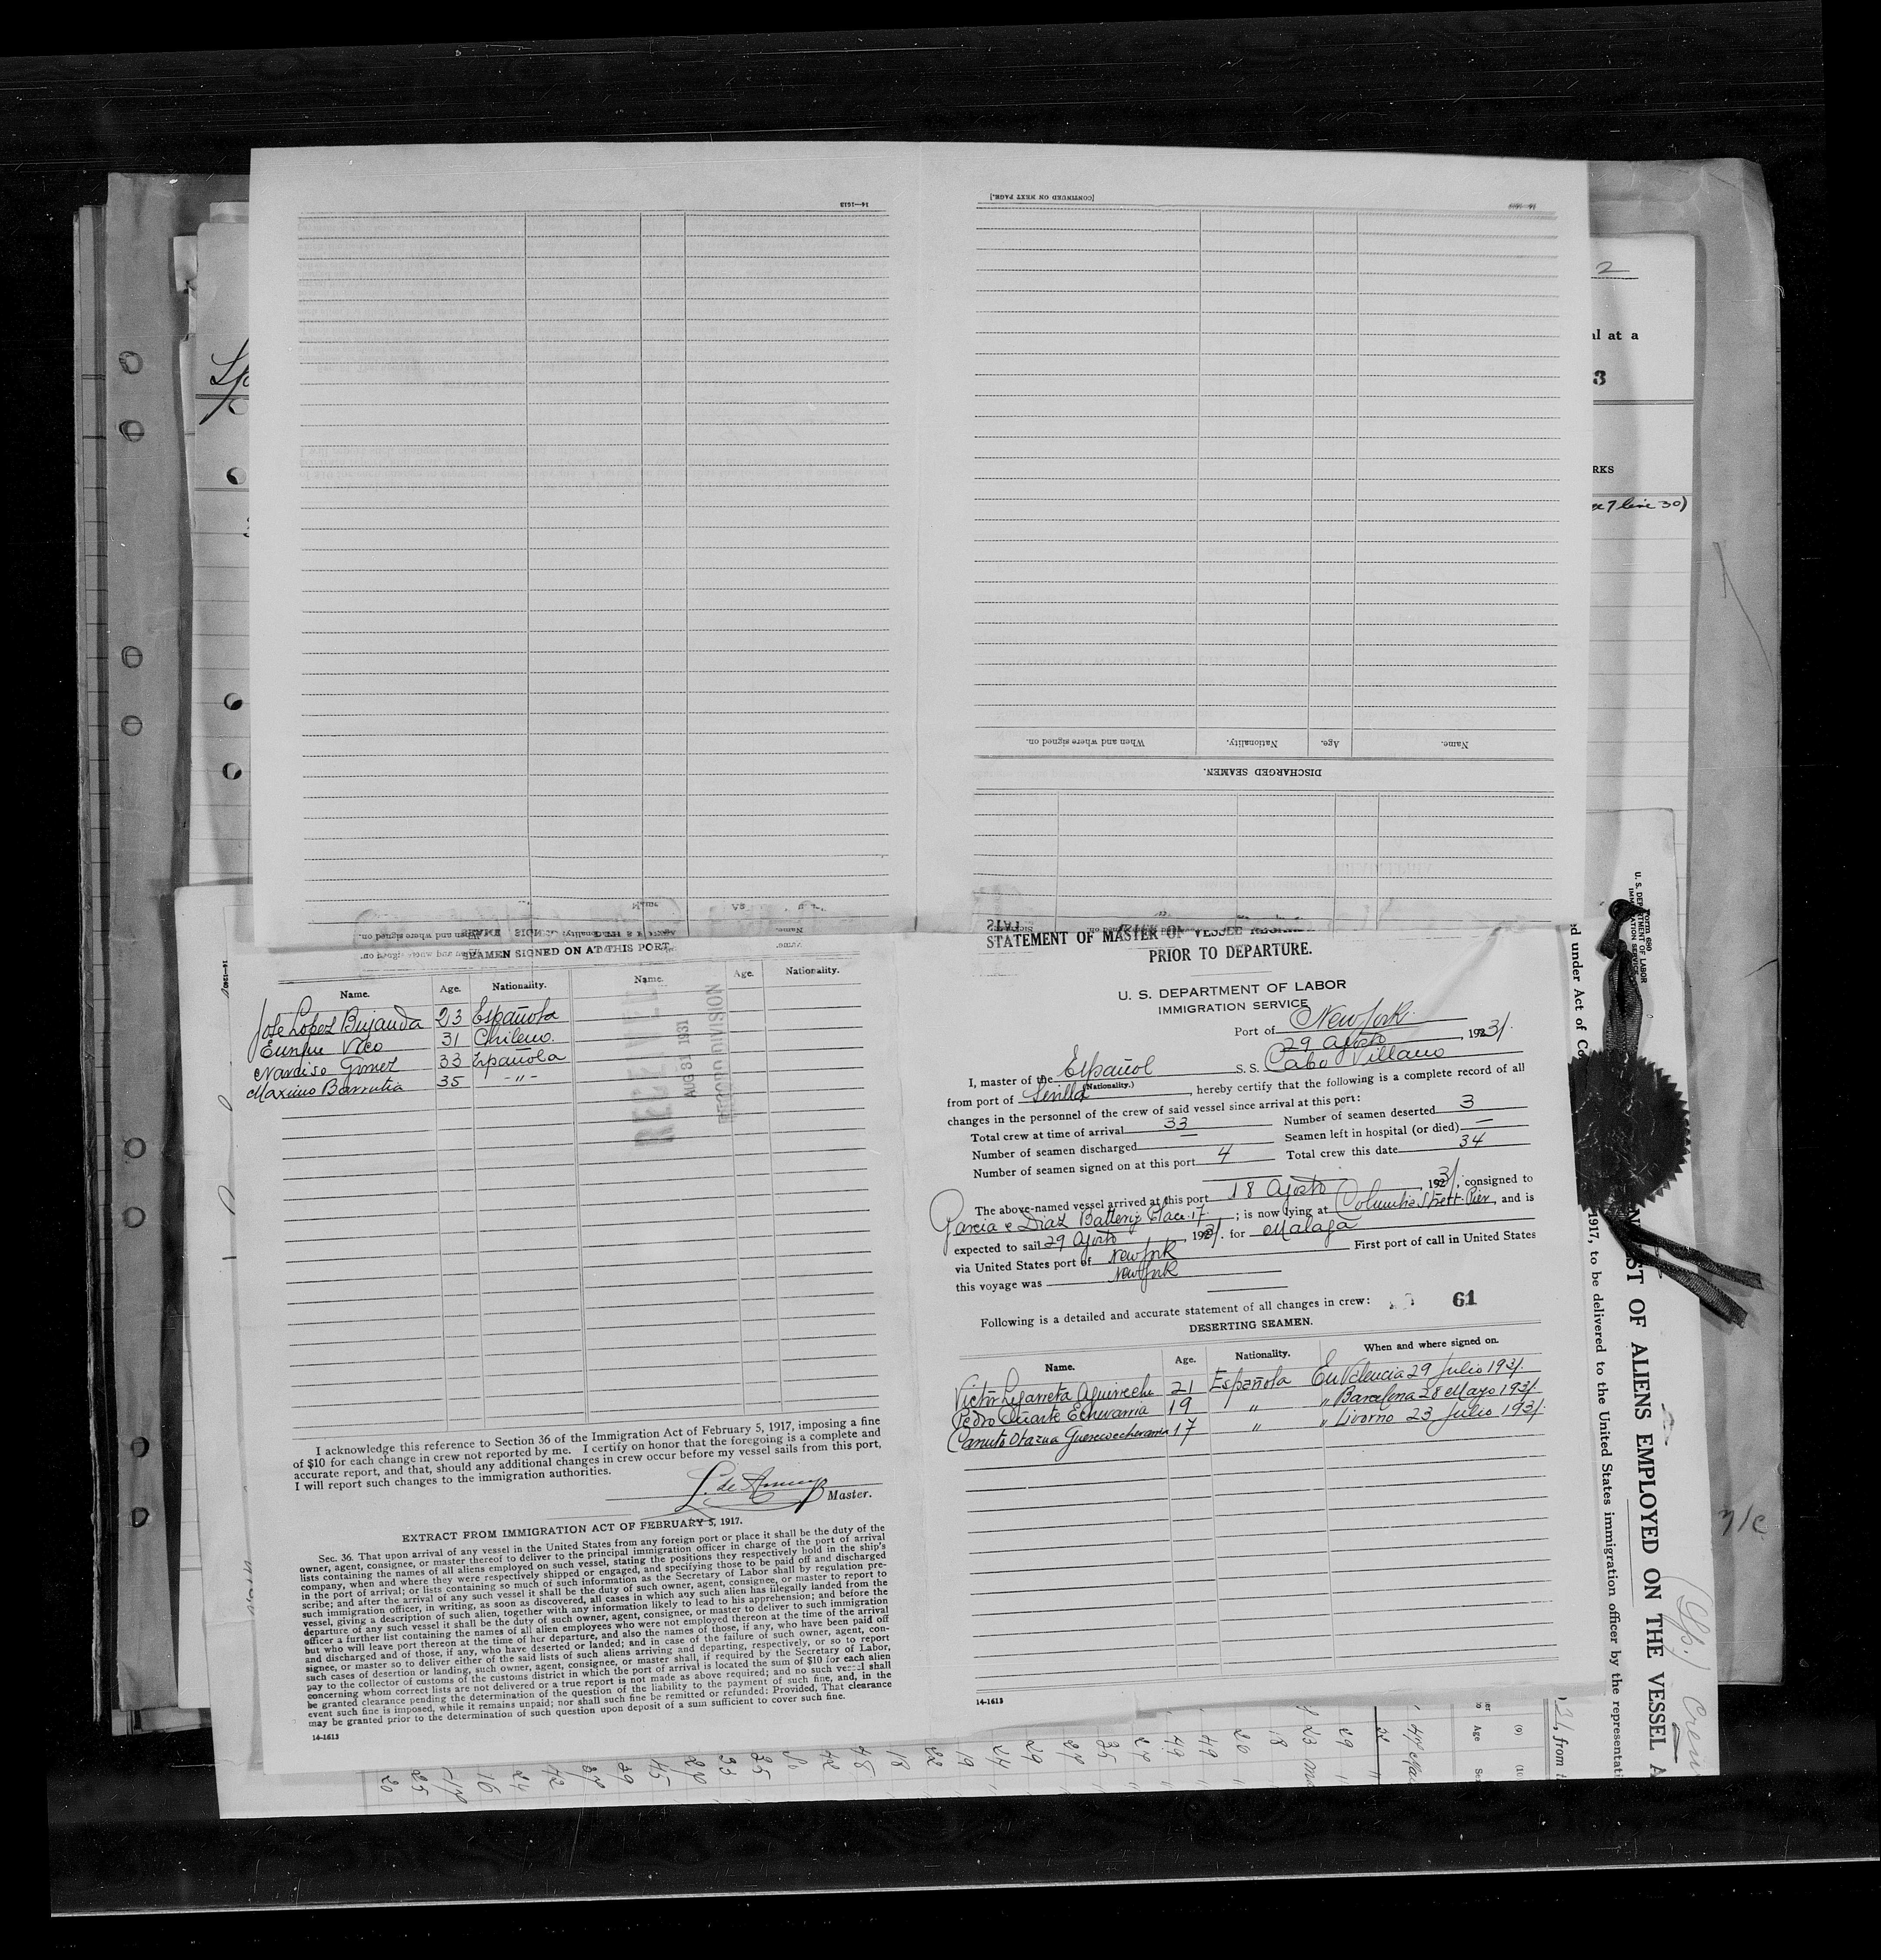 14—1613
[CONTINUED ON NEXT PAGE.]
Name.
Age.
Nationality.
When and where signed on.
DISCHARGED SEAMEN.
2
al at a
3
RKS
line 30)
SEAMEN SIGNED ON AT THIS PORT.
Name. Age. Nationality. Name. Age. Nationality.
Jose Lopez Bujanda 23 Española
Vico 31 Chileno.
Narciso Gomez 33 Española
Maximo Barrutia 35 -"-
RECEIVED
AUG 31 1931
RECORD DIVISION
I acknowledge this reference to Section 36 of the Immigration Act of February 5, 1917, imposing a fine
of $10 for each change in crew not reported by me. I certify on honor that the foregoing is a complete and
accurate report, and that, should any additional changes in crew occur before my vessel sails from this port,
I will report such changes to the immigration authorities.
L. de
Master.
EXTRACT FROM IMMIGRATION ACT OF FEBRUARY 5, 1917.
Sec. 36. That upon arrival of any vessel in the United States from any foreign port or place it shall be the duty of the
owner, agent, consignee, or master thereof to deliver to the principal immigration officer in charge of the port of arrival
lists containing the names of all aliens employed on such vessel, stating the positions they respectively hold in the ship's
company, when and where they were respectively shipped or engaged, and specifying those to be paid off and discharged
in the port of arrival; or lists containing so much of such information as the Secretary of Labor shall by regulation pre-
scribe; and after the arrival of any such vessel it shall be the duty of such owner, agent, consignee, or master to report to
such immigration officer, in writing, as soon as discovered, all cases in which any such alien has illegally landed from the
vessel, giving a description of such alien, together with any information likely to lead to his apprehension; and before the
departure of any such vessel it shall be the duty of such owner, agent, consignee, or master to deliver to such immigration
officer a further list containing the names of all alien employees who were not employed thereon at the time of the arrival
but who will leave port thereon at the time of her departure, and also the names of those, if any, who have been paid off
and discharged and of those, if any, who have deserted or landed; and in case of the failure of such owner, agent, con-
signee, or master so to deliver either of the said lists of such aliens arriving and departing, respectively, or so to report
such cases of desertion or landing, such owner, agent, consignee, or master shall, if required by the Secretary of Labor,
pay to the collector of customs of the customs district in which the port of arrival is located the sum of $10 for each alien
concerning whom correct lists are not delivered or a true report is not made as above required; and no such vessel shall
be granted clearance pending the determination of the question of the liability to the payment of such fine, and, in the
event such fine is imposed, while it remains unpaid; nor shall such fine be remitted or refunded: Provided, That clearance
may be granted prior to the determination of such question upon deposit of a sum sufficient to cover such fine.
14-1613
STATEMENT OF MASTER OF VESSEL
PRIOR TO DEPARTURE.
U. S. DEPARTMENT OF LABOR
IMMIGRATION SERVICE
Port of New York
29 Agosto, 1931.
I, master of the Español S. S. Cabo Villano
(Nationality.)
from port of Sevilla, hereby certify that the following is a complete record of all
changes in the personnel of the crew of said vessel since arrival at this port:
Total crew at time of arrival 33 Number of seamen deserted 3
Number of seamen discharged — Seamen left in hospital (or died) —
Number of seamen signed on at this port 4 Total crew this date 34
The above-named vessel arrived at this port 18 Agosto, 1931, consigned to
Garcia e Diaz Battery Place 17; is now lying at Columbia Street Pier, and is
expected to sail 29 Agosto, 1931. for Malaga
via United States port of New York First port of call in United States
this voyage was New York
Following is a detailed and accurate statement of all changes in crew: 61
DESERTING SEAMEN.
Name. Age. Nationality. When and where signed on.
Victor Lejarreta Aguirreche 21 Española En Valencia 29 Julio 1931.
Pedro Duarte Echevarria 19 " " Barcelona 28 Mayo 1931.
Canuto Otazua 17 " " Livorno 23 Julio 1931.
14-1613
Form 680
U. S. DEPARTMENT OF LABOR
IMMIGRATION SERVICE
OF ALIENS EMPLOYED ON THE VESSEL A
1917, to be delivered to the United States immigration officer by the representati
d under Act of Co
(Sp.) Crew